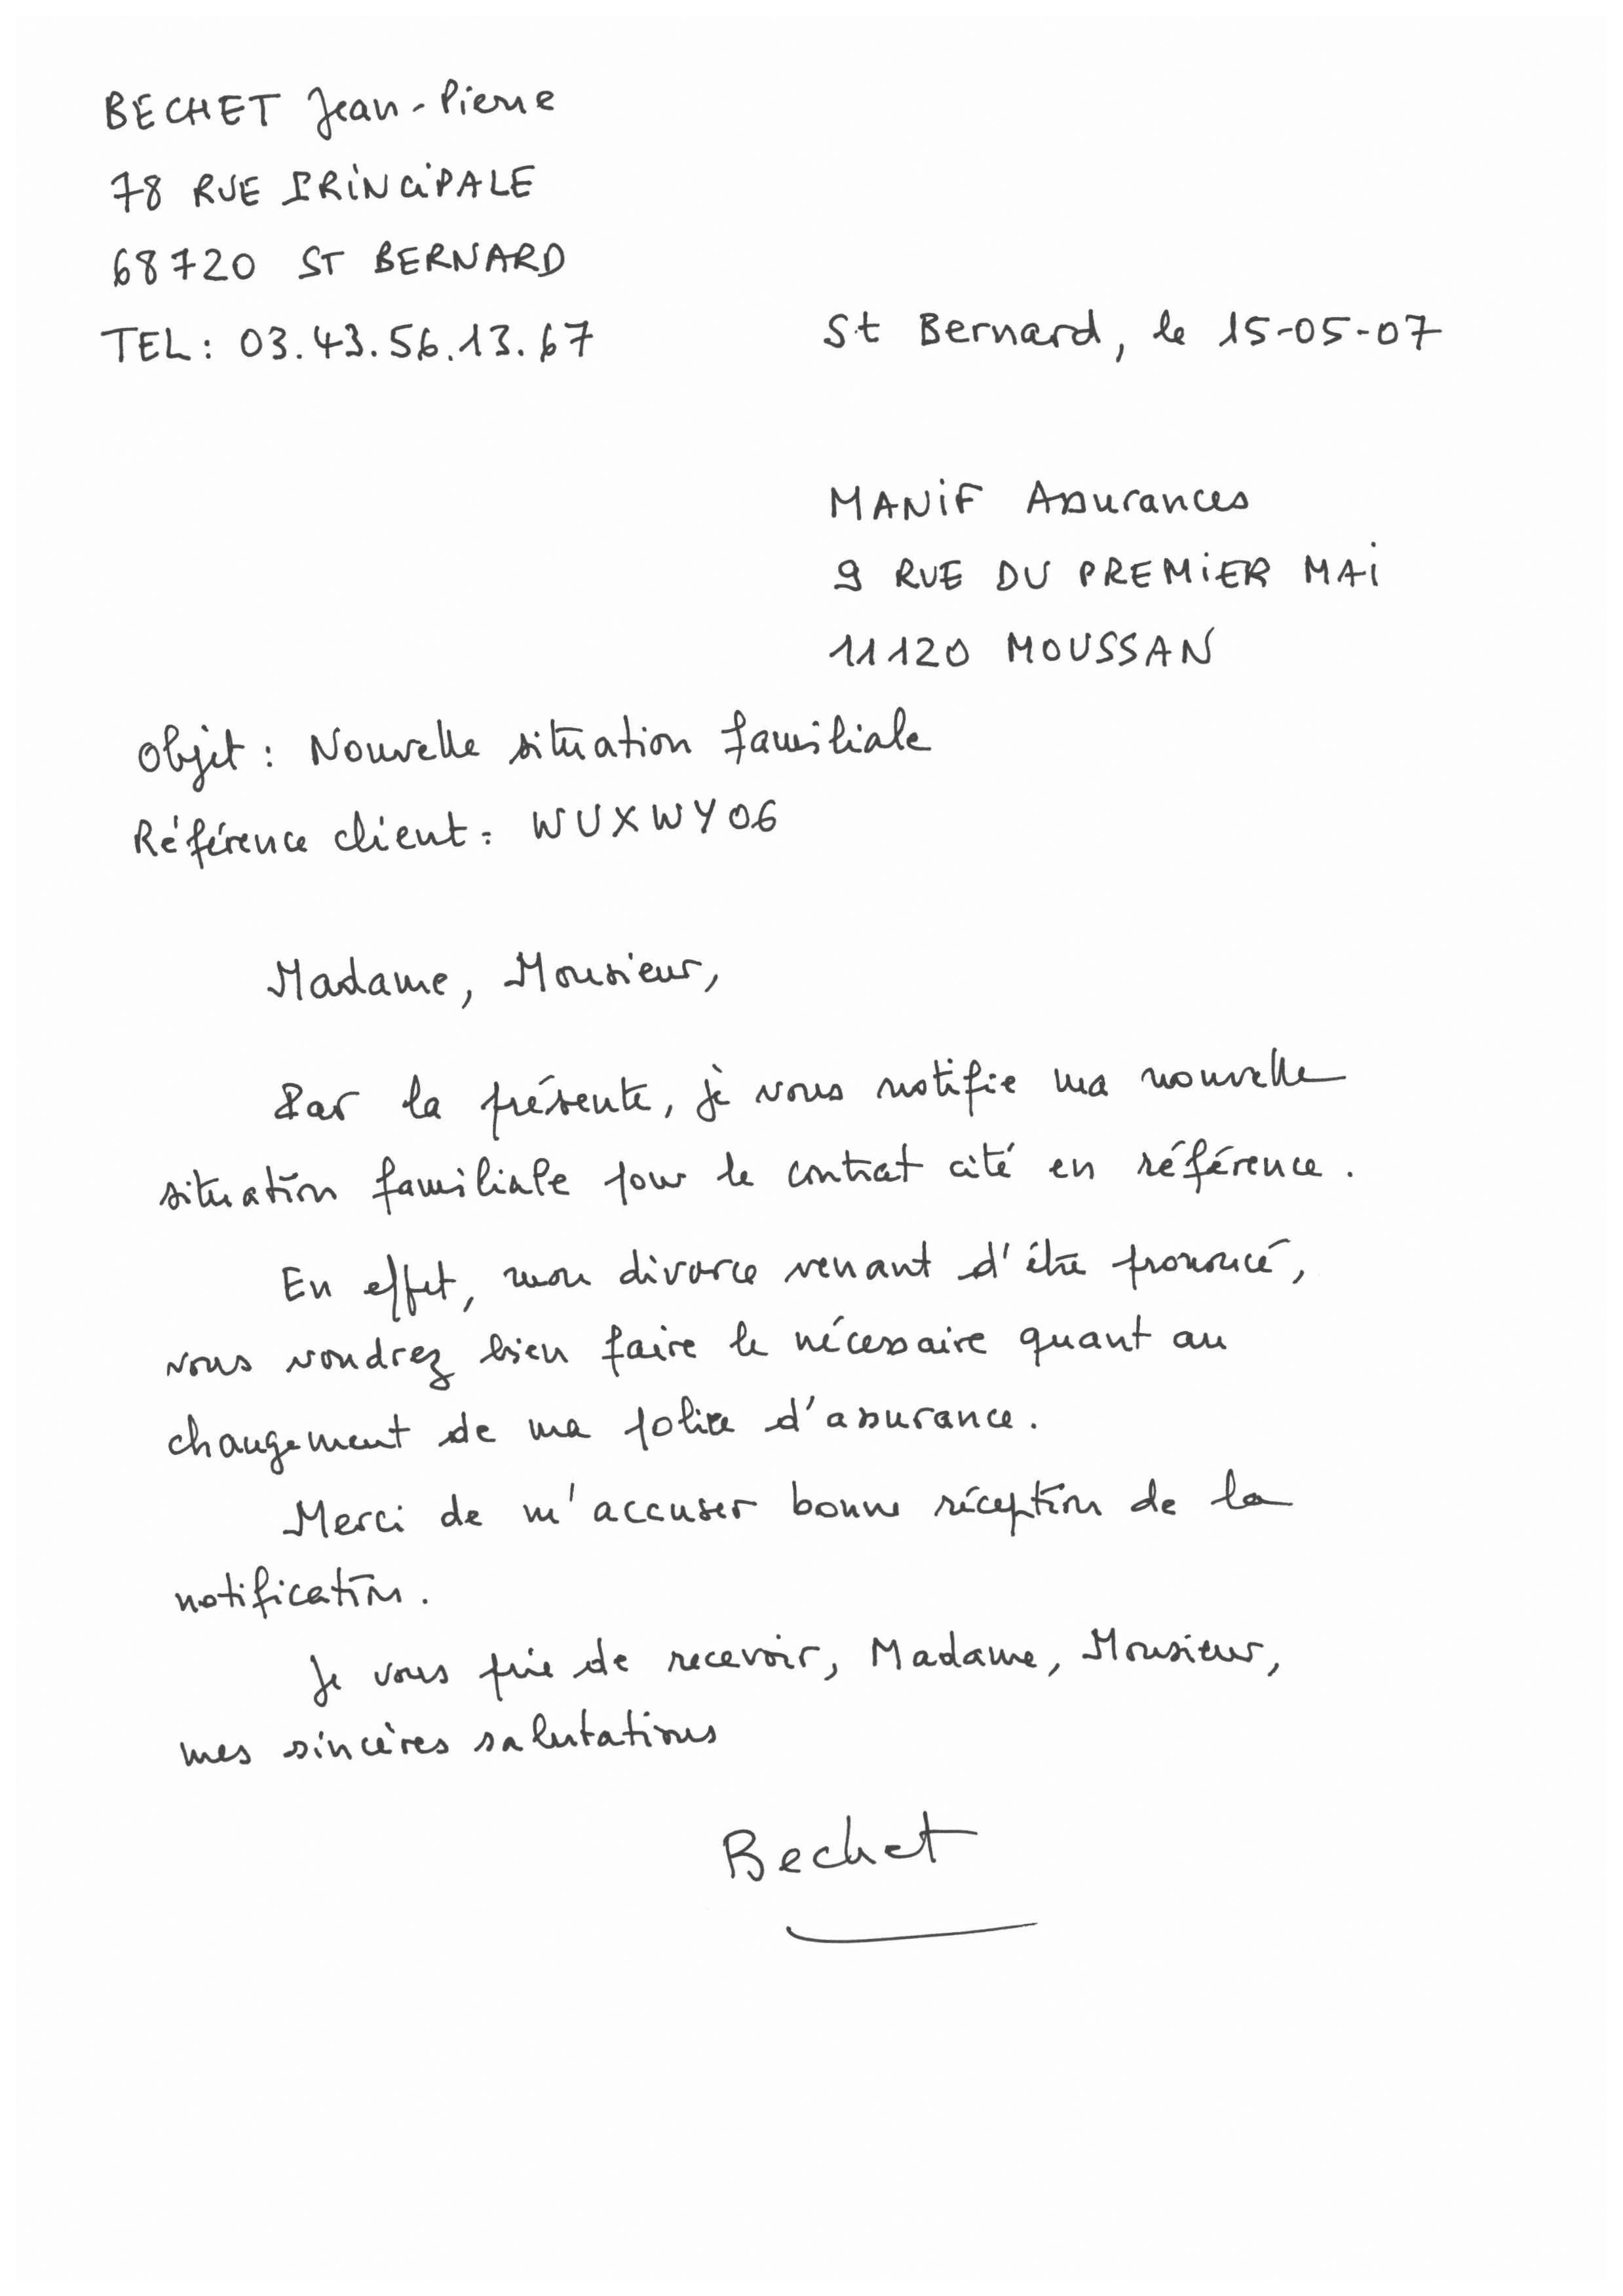 BECHET Jean-Pierre
78 RUE PRINCIPALE
68720 ST BERNARD
TEL: 03.43.56.13.67
St Bernard, le 15-05-07
MANiF Assurances
9 RUE DU PREMIER MAI
11120 MOUSSAN
Objet : Nouvelle situation familiale
Référence client : WUXWY06
Madame, Monsieur,
Par la présente, je vous notifie ma nouvelle
situation familiale pour le contrat cité en référence.
En effet, mon divorce venant d'être prononcé,
vous voudrez bien faire le nécessaire quant au
changement de ma police d'assurance.
Merci de m'accuser bonne réception de la
notification.
Je vous prie de recevoir, Madame, Monsieur,
mes sincères salutations
Bechet